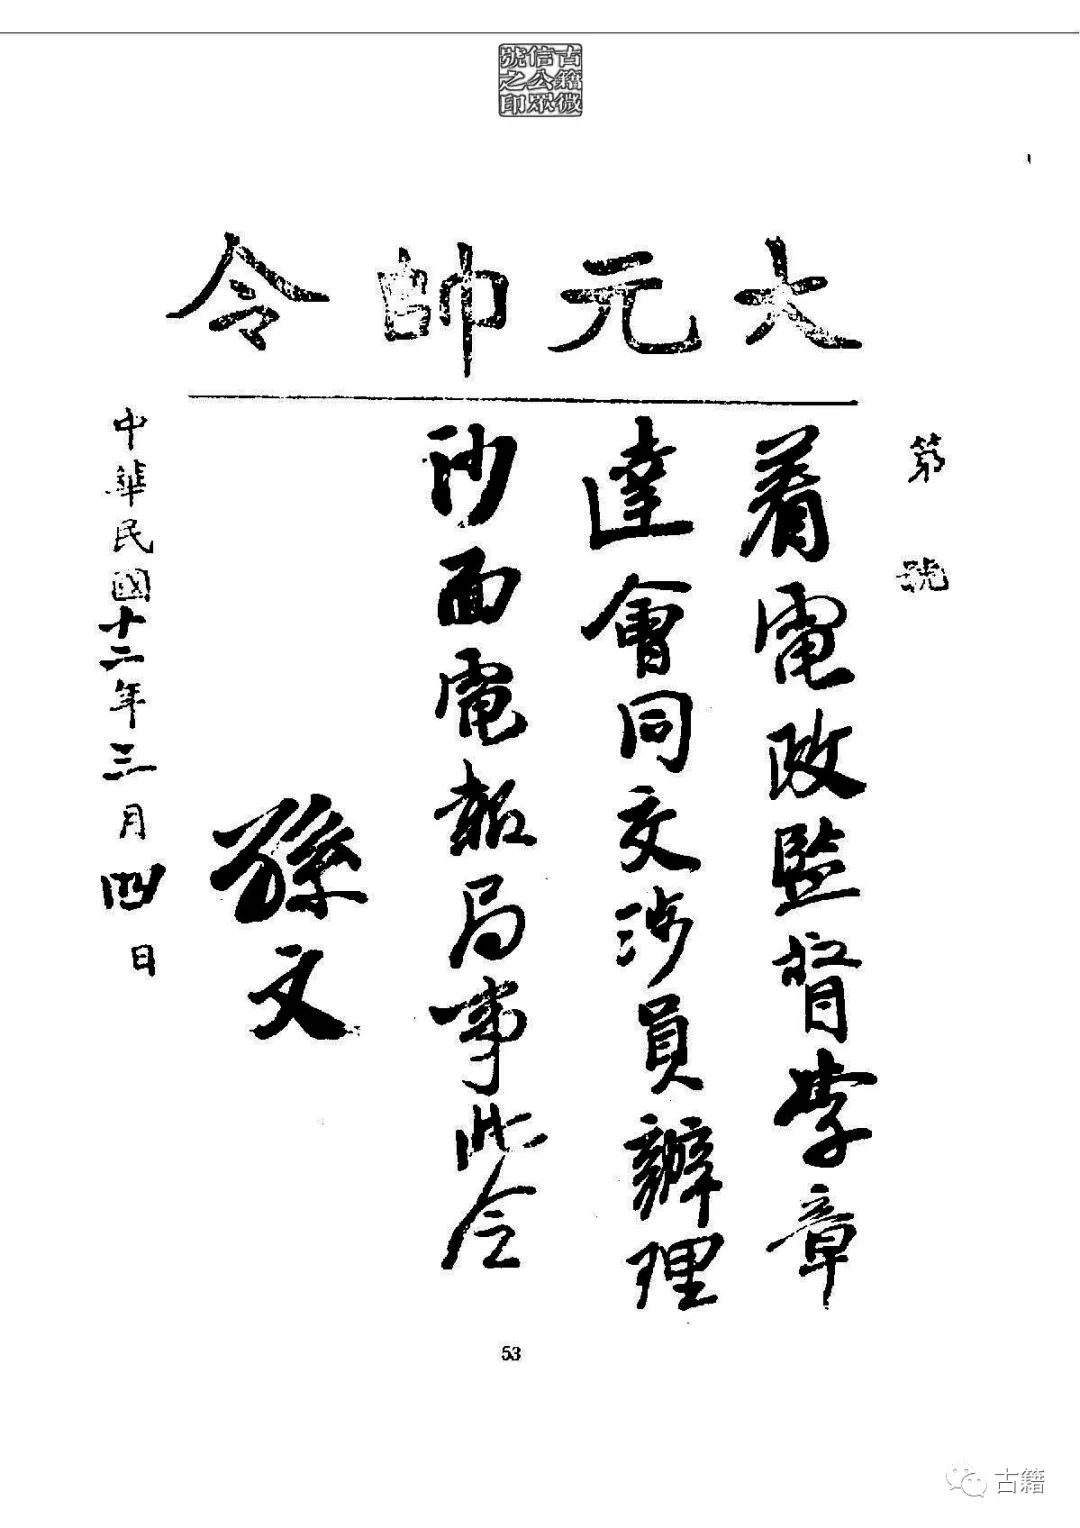 古籍微
信公眾
號之印
大元帥令
第 號
着電政監督李章
達會同交涉員辦理
沙面電報局事此令
孫文
中華民國十二年三月四日
53
古籍